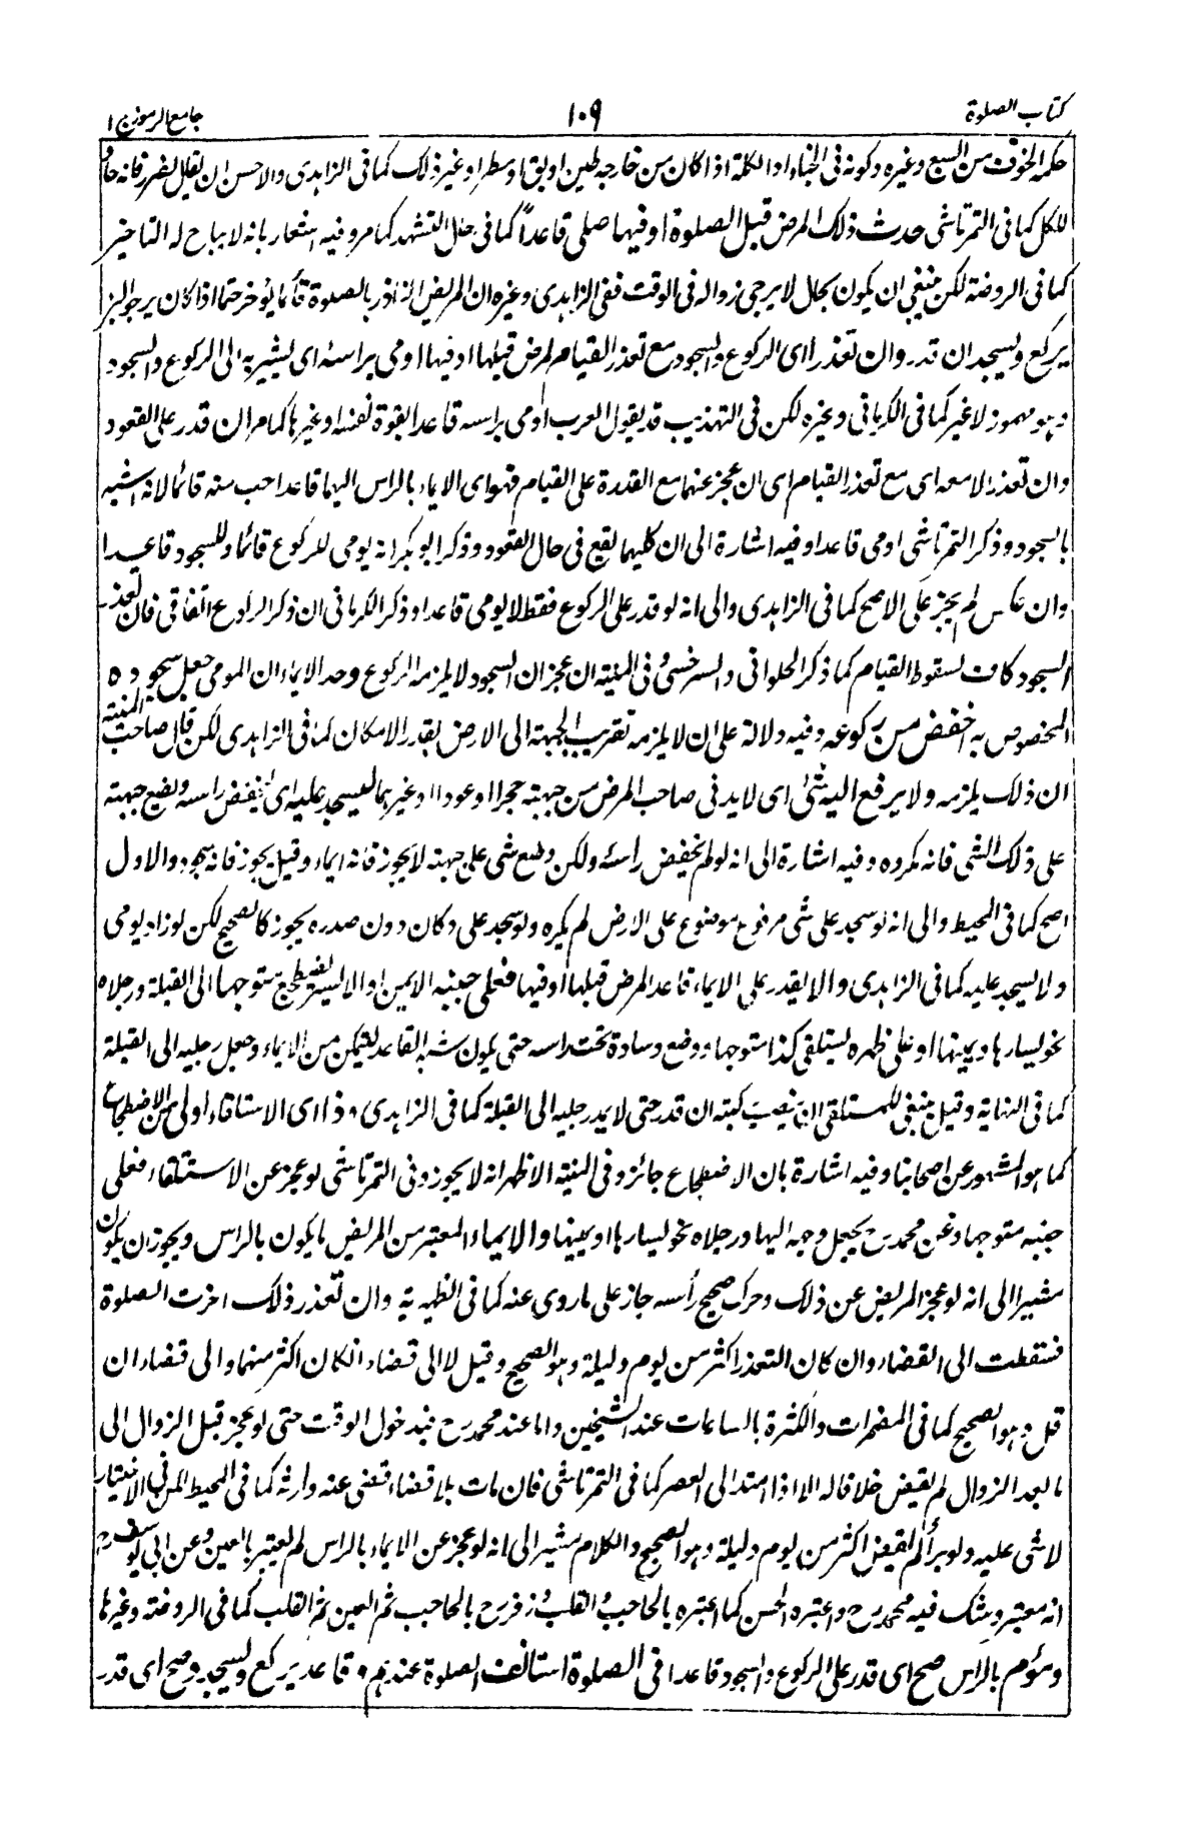 كتاب الصلوة
١٠٩
جامع الرموز ج ١
حكمه الخوف من السبع وغيره وكونه فى الخباء او الكلة اذا كان من خارجه طين او بق او مطر او غير ذلك كما فى الزاهدى والاحسن ان يقال لضرر فانه
للكل كما فى التمرتاشى حدث ذلك المرض قبل الصلوة او فيها صلى قاعداً كما فى حال التشهد كما مر وفيه اشعار بانه لا يباح له التاخير
كما فى الروضة لكن ينبغى ان يكون بحال لا يرجى زواله فى الوقت ففى الزاهدى وغيره ان المريض بالصلوة قائما يؤخر حتما اذا كان يرجو البر
يركع ويسجد ان قدر وان تعذرا اى الركوع والسجود مع تعذر القيام لمرض قبلها او فيها اومى براسه اى يشير به الى الركوع والسجود
وهو مهموز لا غير كما فى الكرمانى وغيره لكن فى التهذيب قد يقول العرب اومى براسه قاعدا لقوة نفسه او غيرها كما مر ان قدر على القعود
وان تعذرا لا معه اى مع تعذر القيام اى ان عجز عنهما مع القدرة على القيام فهو اى الايماء بالراس اليهما قاعدا احب منه قائما لانه اشبه
بالسجود وذكر التمرتاشى اومى قاعدا وفيه اشارة الى ان كليهما يقع فى حال القعود وذكر ابو بكر انه يومى للركوع قائما وللسجود قاعدا
وان عكس لم يجز على الاصح كما فى الزاهدى والى انه لو قدر على الركوع فقط لا يومى قاعدا وذكر الكرمانى ان ذكر الركوع اتفاقى فان تعذر
السجود كافٍ لسقوط القيام كما ذكر الحلوانى والسرخسى وفى المنية ان عجز ان السجود لا يلزمه الركوع وحد الايماء ان المومى جعل سجوده
المخصوص به اخفض من ركوعه وفيه دلالة على ان لا يلزمه تقريب الجبهة الى الارض بقدر الامكان كما فى الزاهدى لكن قال صاحب المنية
ان ذلك يلزمه ولا يرفع اليه شئ اى لا يدنى صاحب المرض من جبهته حجرا او عودا او غيرهما ليسجد عليه اى يخفض راسه ويضع جبهته
على ذلك الشى فانه مكروه وفيه اشارة الى انه لو لم يخفض رأسه ولكن وضع شى على جبهته لا يجوز فانه ايماء وقيل يجوز فانه سجود والاول
اصح كما فى المحيط والى انه لو سجد على شى مرفوع موضوع على الارض لم يكره ولو سجد على دكان دون صدره يجوز كالصحيح لكن لو زاد يومى
ولا يسجد عليه كما فى الزاهدى والا يقدر على الايماء قاعدا لمرض قبلها او فيها فعلى جنبه الايمن او الايسر يضطجع متوجها الى القبلة ورجلاه
نحو يسارها ويمينها او على ظهره يستلقى كذا متوجها ووضع وسادة تحت راسه حتى يكون شبه القاعد ليتمكن من الايماء وجعل رجليه الى القبلة
كما فى النهاية وقيل ينبغى للمستلقى ان ينصب ركبته ان قدر حتى لا يمد رجليه الى القبلة كما فى الزاهدى وذا اى الاستلقاء اولى من الاضطجاع
كما هو المشهور عن اصحابنا وفيه اشارة بان الاضطجاع جائز وفى المنية الاظهر انه لا يجوز وفى التمرتاشى لو عجز عن الاستلقاء فعلى
جنبه متوجها وعن محمد رح يجعل وجهه اليها ورجلاه نحو يسارها او يمينها والايماء المعتبر من المريض ما يكون بالراس ويجوز ان يكون
مشيرا الى انه لو عجز المريض عن ذلك وحرك صحيح رأسه جاز على ما روى عنه كما فى الظهيرية وان تعذر ذلك اخرت الصلوة
فسقطت الى القضاء وان كان التعذر اكثر من يوم وليلة وهو الصحيح وقيل لا الى قضاء ان كان اكثر منهما والى قضاء ان
قل وهو الصحيح كما فى المضمرات والكثرة بالساعات عند الشيخين واما عند محمد رح فبدخول الوقت حتى لو عجز قبل الزوال الى
ما بعد الزوال لم يقض خلافا له الا اذا امتد الى العصر كما فى التمرتاشى فان مات بلا قضاء اقضى عنه وارثه كما فى المحيط
لا شى عليه ولو برأ لم يقض اكثر من يوم وليلة وهو الصحيح والكلام مشير الى انه لو عجز عن الايماء بالراس لم يعتبر بالعين وعن ابى يوسف رح
انه معتبر وشك فيه محمد رح واعتبره الحسن كما اعتبره بالحاجب والقلب وزفر رح بالحاجب ثم العين ثم القلب كما فى الروضة وغيرها
ومؤم بالراس صح اى قدر على الركوع والسجود قاعدا فى الصلوة استانف الصلوة عندهم وقاعد يركع ويسجد وصح اى قدر